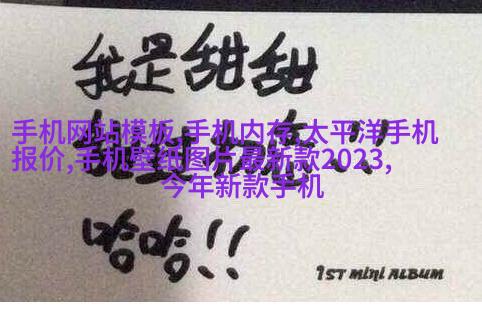 我是甜甜
手机网站模板,手机内存,太平洋手机
报价,手机壁纸图片最新款2023,
今年新款手机
哈哈!!
1ST mini ALBUM